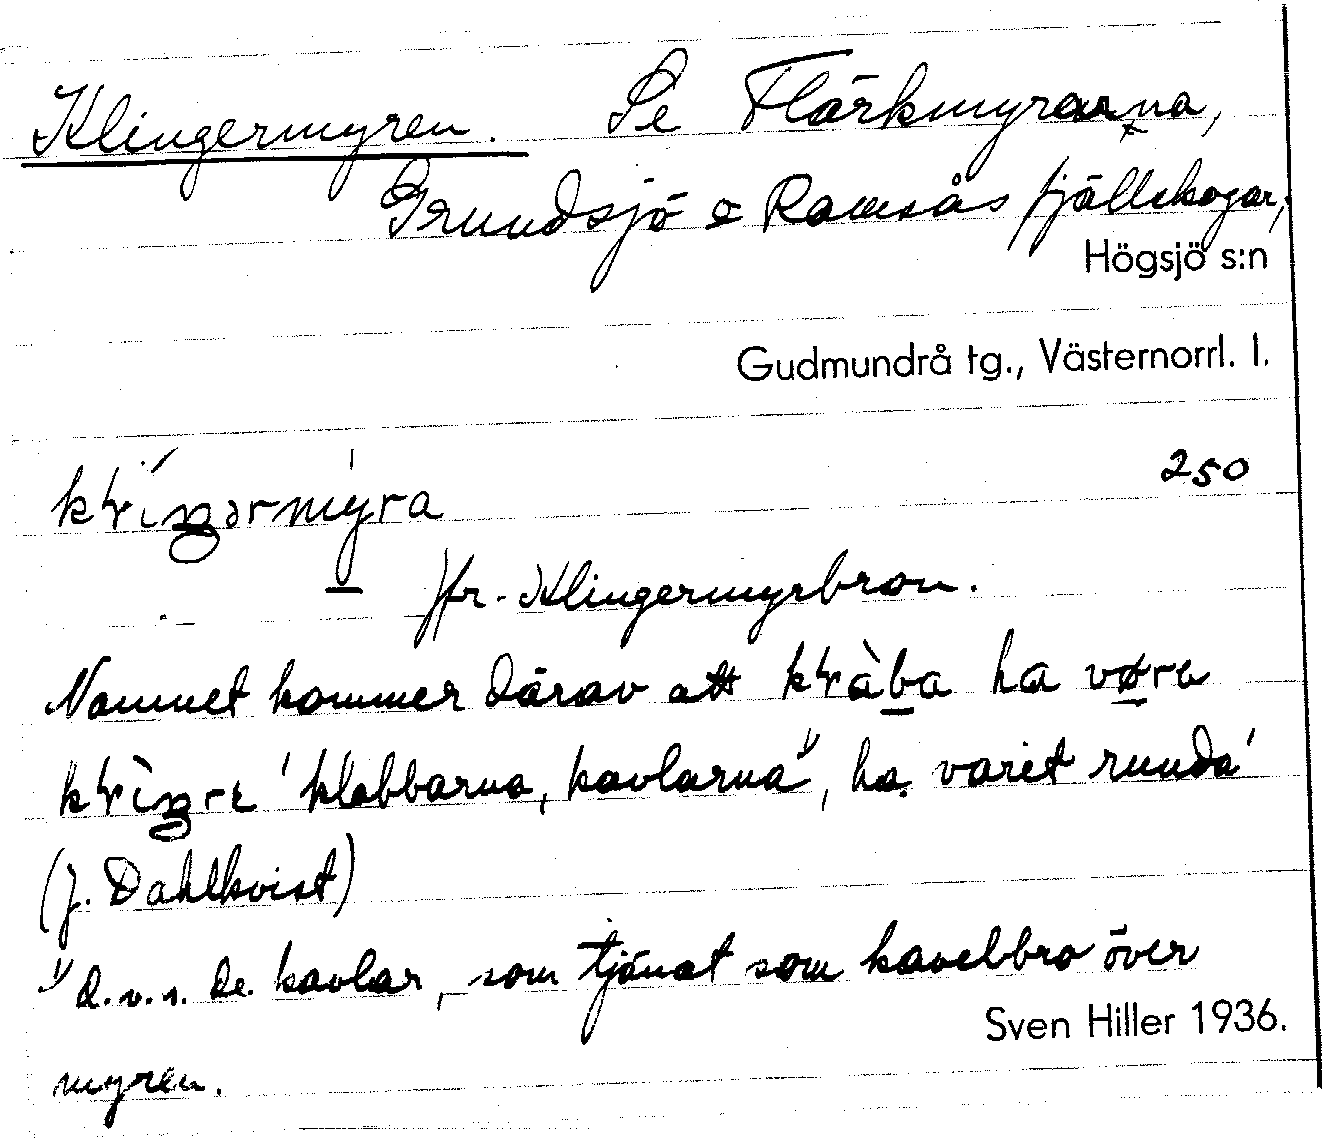 Klingermyren. Se Flärkmyrarna,
Grundsjö o Ramsås fjällskogar,
Högsjö s:n
Gudmundrå tg., Västernorrl. l.
250
Jfr. Klingermyrbron.
Namnet kommer därav att ha
'klabbarna, kavlarna¹⁾, ha varit runda'
(J. Dahlkvist)
¹⁾ d.v.s. de kavlar, som tjänat som kavelbro över
Sven Hiller 1936.
myren.